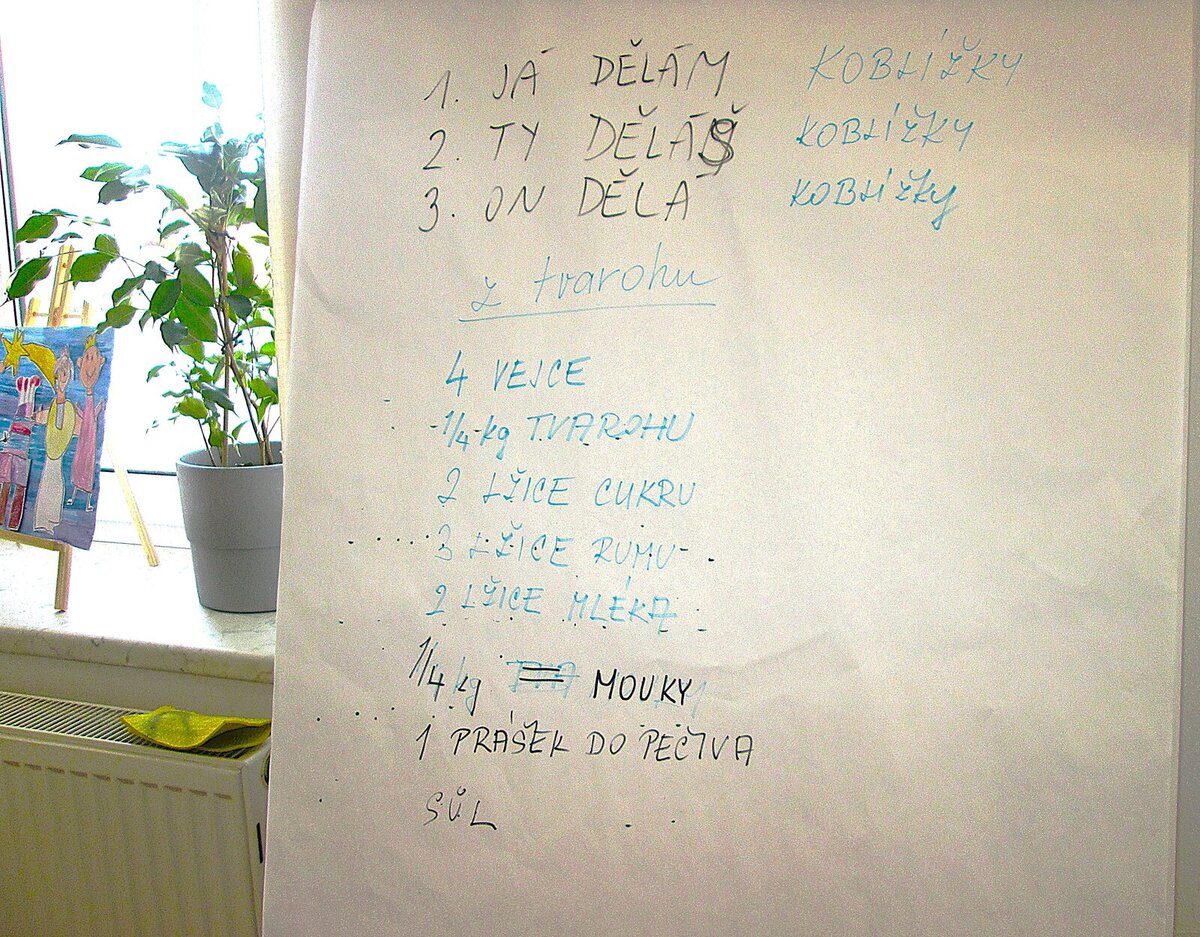 1. JÁ DĚLÁM KOBLÍŽKY
2. TY DĚLÁŠ KOBLÍŽKY
3. ON DĚLÁ KOBLÍŽKY
z tvarohu
4 VEJCE
1/4 kg TVAROHU
2 LŽICE CUKRU
3 LŽICE RUMU
2 LŽICE MLÉKA
1/4 kg MOUKY
1 PRÁŠEK DO PEČIVA
SŮL